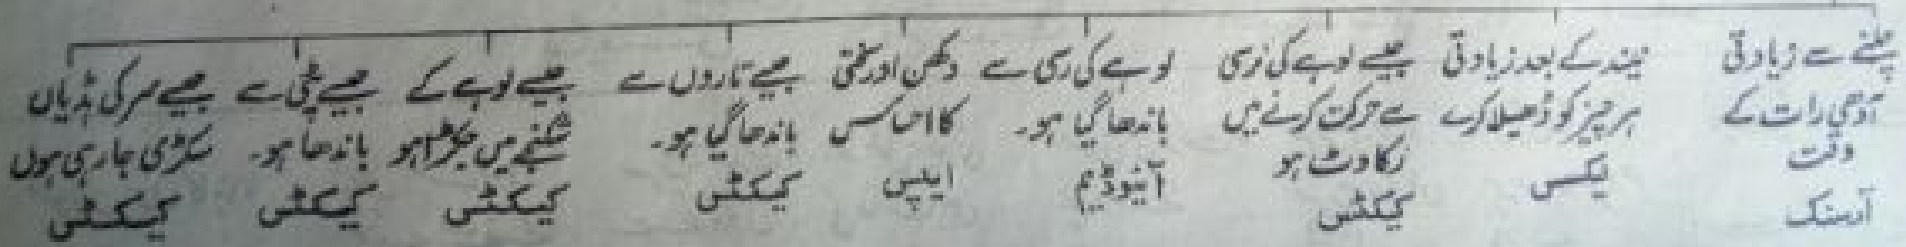 چلنے سے زیادتی
آدھی رات کے
وقت
آرسنک
نیند کے بعد زیادتی
ہر چیز کو ڈھیلا کرے
لیکس
جیسے لوہے کی نرسی
سے حرکت کرنے میں
رکاوٹ ہو
کیکٹس
لوہے کی رسی سے
باندھا گیا ہو۔
آئیوڈیم
دکھن اور سختی
کا احساس
ایپس
جیسے تاروں سے
باندھا گیا ہو۔
کیکٹس
جیسے لوہے کے
شکنجے میں جکڑا ہو
کیکٹس
جیسے پٹی سے
باندھا ہو۔
کیکٹس
جیسے سر کی ہڈیاں
سکڑی جا رہی ہوں
کیکٹس